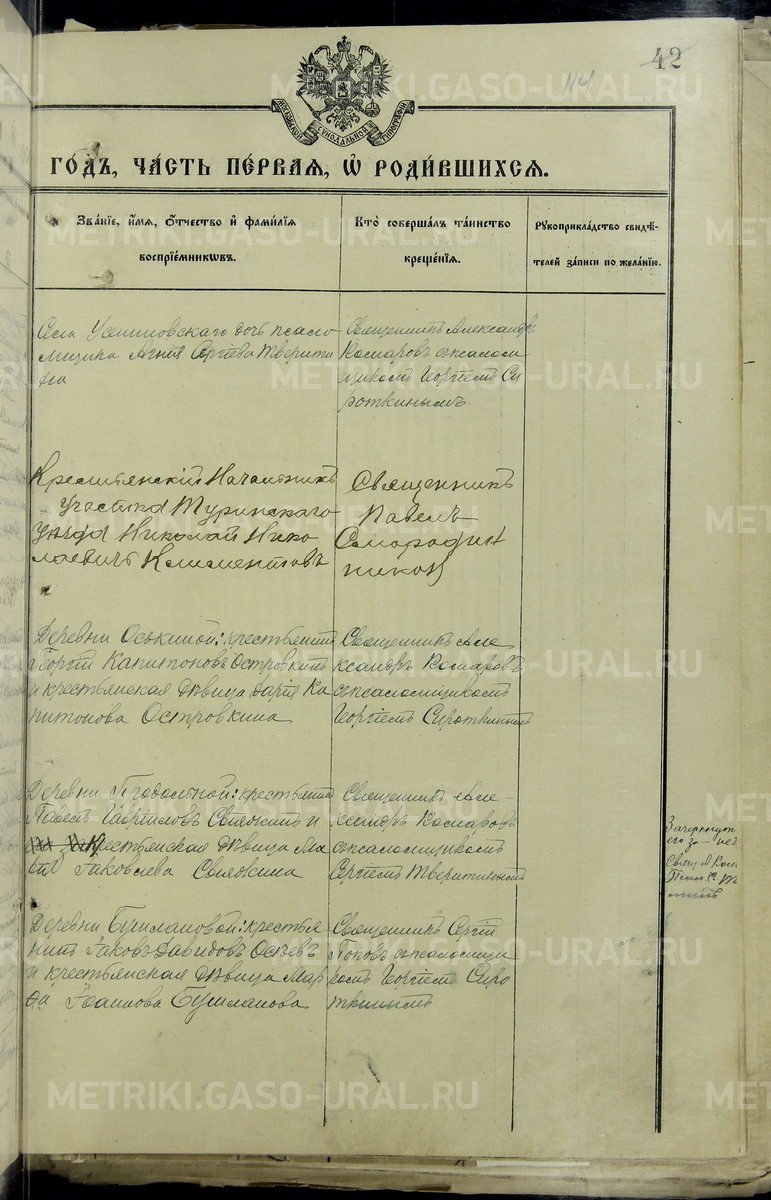 42
114
МОСКОВСКОЙ СѴНОДАЛЬНОЙ ТИПОГРАФІИ
ГО́ДЪ, ЧА́СТЬ ПЕ́РВАЯ, Ѡ҆ РОДИ́ВШИХСЯ.
Зва́нїе, и҆́мя, ѻ҆́тчество и҆ фами́лїя
воспрїе́мникωвъ.
Кто̀ соверша́лъ та́инство
креще́нїя.
Рꙋкоприкла́дство свидѣ́-
телей за́писи по жела́нїю.
Села Усениновскаго дочь псало
мщика Агнія Сергіева Тверити
на
Священникъ Александръ
Комаровъ съ псаломщ
щикомъ Георгіемъ Си
роткинымъ
Крестьянскій Начальникъ
участка Туринскаго
уѣзда Николай Нико
лаевичъ Климентовъ
Священникъ
Павелъ
Смородин
никовъ
Деревни Оськиной: крестьянинъ
Георгій Капитоновъ Островкинъ
и крестьянская дѣвица Дарія Ка
питонова Островкина
Священникъ Але
ксандръ Комаровъ
съ псаломщикомъ
Георгіемъ Сироткинымъ
Деревни Продольной: крестьянинъ
Павелъ Гавриловъ и
крестьянская дѣвица Ма
Іаковлева
Священникъ Але-
ксандръ Комаровъ
съ псаломщикомъ
Сергіемъ Тверитинымъ
Зачеркнут
Свящ. А Ком
Деревни Бушлановой: крестья
нинъ Іаковъ Давидовъ
и крестьянская дѣвица Мар
ѳа Іоаннова Бушланова
Священникъ Сергій
Поповъ съ псаломщи
комъ Георгіемъ Сиро
ткинымъ
METRIKI.GASO-URAL.RU